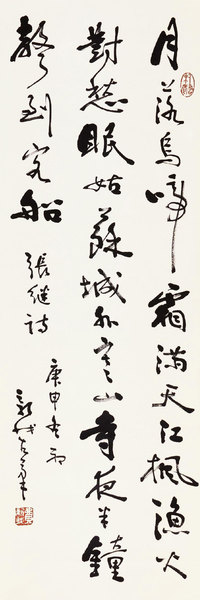 月落烏啼霜滿天江楓漁火
對愁眠姑蘇城外寒山寺夜半鐘
聲到客船 張繼詩
庚申